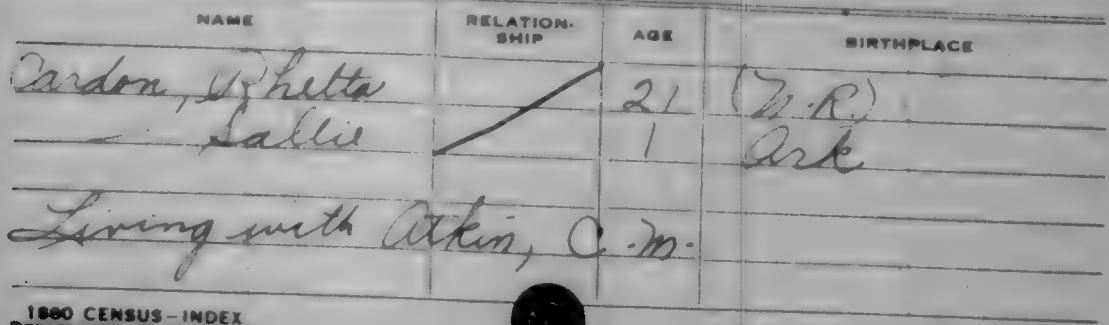 NAME RELATION-SHIP AGE BIRTHPLACE
Cardon, Rhetta 21 (N.R.)
— Sallie 1 Ark
Living with Atkin, C.M.
1880 CENSUS-INDEX